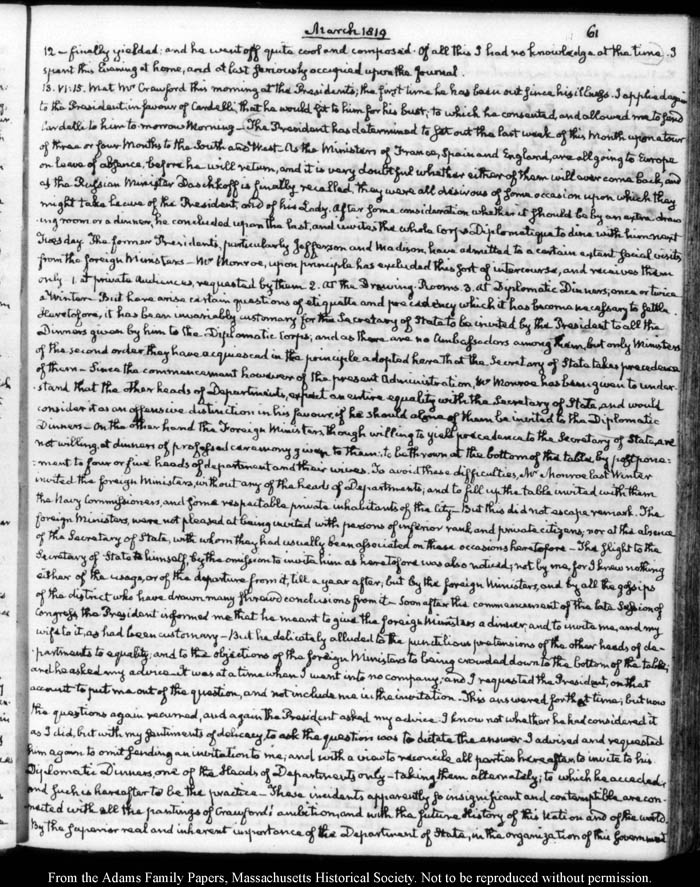 March 1819
61
12 — finally yielded; and he went off quite cool and composed. Of all this I had no knowledge at the time. I
spent this Evening at home, and at last seriously occupied upon the Journal.
13. VI:15. Met Mr Crawford this morning at the Presidents; the first time he has been out since his illness. I applied again
to the President in favour of Cardelli, that he would sit to him for his bust; to which he consented, and allowed me to send
Cardelli to him to-morrow Morning — The President has determined to set out the last week of this Month upon a tour
of three or four Months to the South and West. As the Ministers of France, Spain and England, are all going to Europe
on leave of absence, before he will return, and it is very doubtful whether either of them will ever come back, and
as the Russian Minister Daschkoff is finally recalled, they were all desirous of some occasion upon which they
might take leave of the President, and of his Lady. After some consideration whether it should be by an extra draw-
ing room or a dinner, he concluded upon the last, and invites the whole Corps Diplomatique to dine with him next
Tuesday. The former Presidents, particularly Jefferson and Madison, have admitted to a certain extent social visits
from the foreign Ministers — Mr Monroe, upon principle has excluded this sort of intercourse, and receives them
only 1. at private Audiences, requested by them 2. At the Drawing-Rooms 3. at Diplomatic Dinners; once or twice
a Winter. But here arise certain questions of etiquette and precedency which it has become necessary to settle.
Heretofore, it has been invariably customary for the Secretary of State to be invited by the President to all the
Dinners given by him to the Diplomatic Corps; and as there are no Ambassadors among them, but only Ministers
of the second order they have acquiesced in the principle adopted here that the Secretary of State takes precedence
of them — Since the commencement however of the present Administration, Mr Monroe has been given to under-
stand that the other heads of Departments, expect an entire equality with the Secretary of State, and would
consider it as an offensive distinction in his favour, if he should alone of them be invited to the Diplomatic
Dinners — On the other hand the Foreign Ministers though willing to yield precedence to the Secretary of State, are
not willing, at dinners of professed ceremony given to them, to be thrown at the bottom of the table, by postpone-
ment to four or five heads of department and their wives. To avoid these difficulties, Mr Monroe last Winter
invited the foreign Ministers, without any of the heads of Departments; and to fill up the table invited with them
the Navy Commissioners, and some respectable private inhabitants of the City — But this did not escape remark. The
foreign Ministers, were not pleased at being invited with persons of inferior rank and private citizens; nor at the absence
of the Secretary of State, with whom they had usually been associated on these occasions heretofore — The slight to the
Secretary of State himself, by the omission to invite him as heretofore was also noticed; not by me, for I knew nothing
either of the usage, or of the departure from it, till a year after; but by the foreign Ministers, and by all the gossips
of the district who have drawn many shrewd conclusions from it — Soon after the commencement of the late Session of
Congress, the President informed me that he meant to give the foreign Ministers a dinner, and to invite me, and my
wife to it, as had been customary — But he delicately alluded to the punctilious pretensions of the other heads of de-
partments to equality; and to the objections of the foreign Ministers to being crowded down to the bottom of the table;
and he asked my advice. It was at a time when I went into no company; and I requested the President, on that
account to put me out of the question, and not include me in the invitation. This answered for that time; but now
the questions again recurred, and again the President asked my advice. I know not whether he had considered it
as I did, but with my sentiments of delicacy, to ask the question was to dictate the answer. I advised and requested
him again to omit sending an invitation to me; and with a view to reconcile all parties hereafter to invite to his
Diplomatic Dinners one of the Heads of Departments only — taking them alternately; to which he acceded,
and such is hereafter to be the practice — These incidents apparently so insignificant and contemptible are con-
nected with all the pantings of Crawford's ambition, and with the future History of this Nation and of the world.
By the superior real and inherent importance of the Department of State, in the organization of this Government
From the Adams Family Papers, Massachusetts Historical Society. Not to be reproduced without permission.